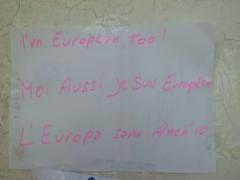 I'm European Too!
Moi Aussi je Suis Européen
L'Europa sono Anch'io